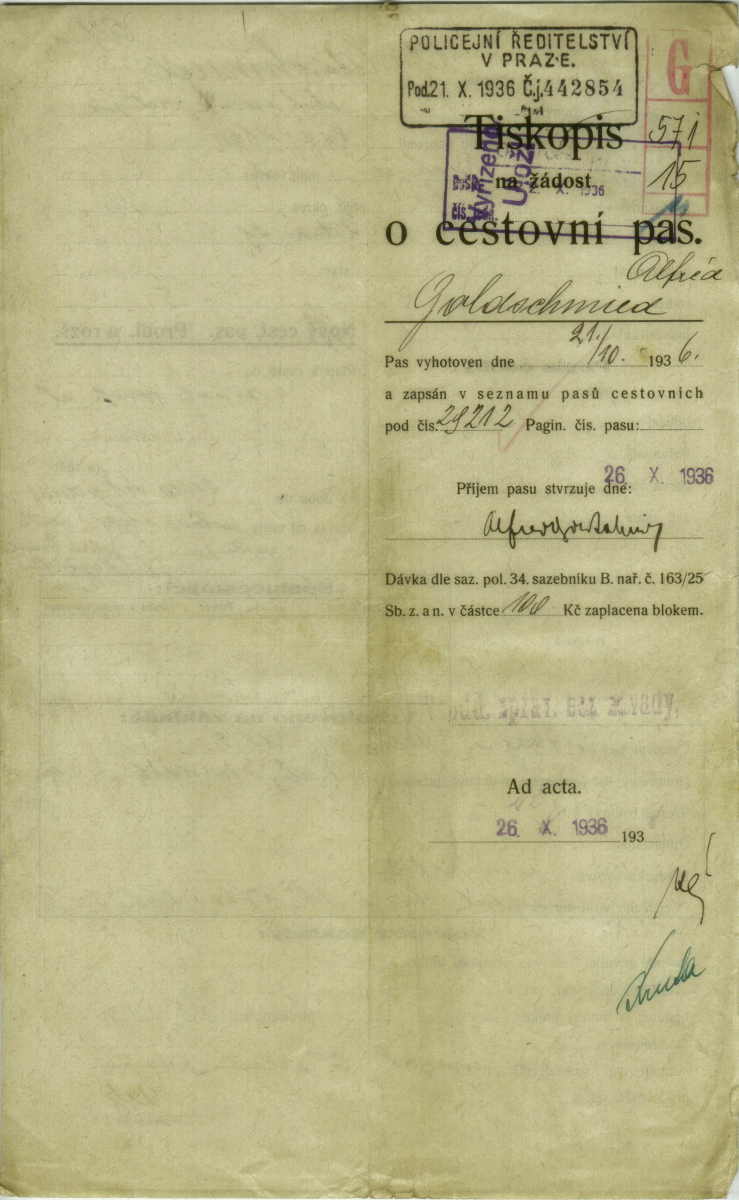 POLICEJNÍ ŘEDITELSTVÍ
V PRAZE.
Pod. 21. X. 1936 Č.j. 442854
G
571
15
Tiskopis
Vyřízeno
Ulož
Došlo
X. 1936
čís.
na žádost
o cestovní pas.
Alfréd
Goldschmied
Pas vyhotoven dne 21./10. 1936.
a zapsán v seznamu pasů cestovních
pod čís. 29212 Pagin. čís. pasu:
Příjem pasu stvrzuje dne: 26. X. 1936
Dávka dle saz. pol. 34. sazebníku B. nař. č. 163/25
Sb. z. a n. v částce 100 Kč zaplacena blokem.
Ad acta.
26. X. 1936 193